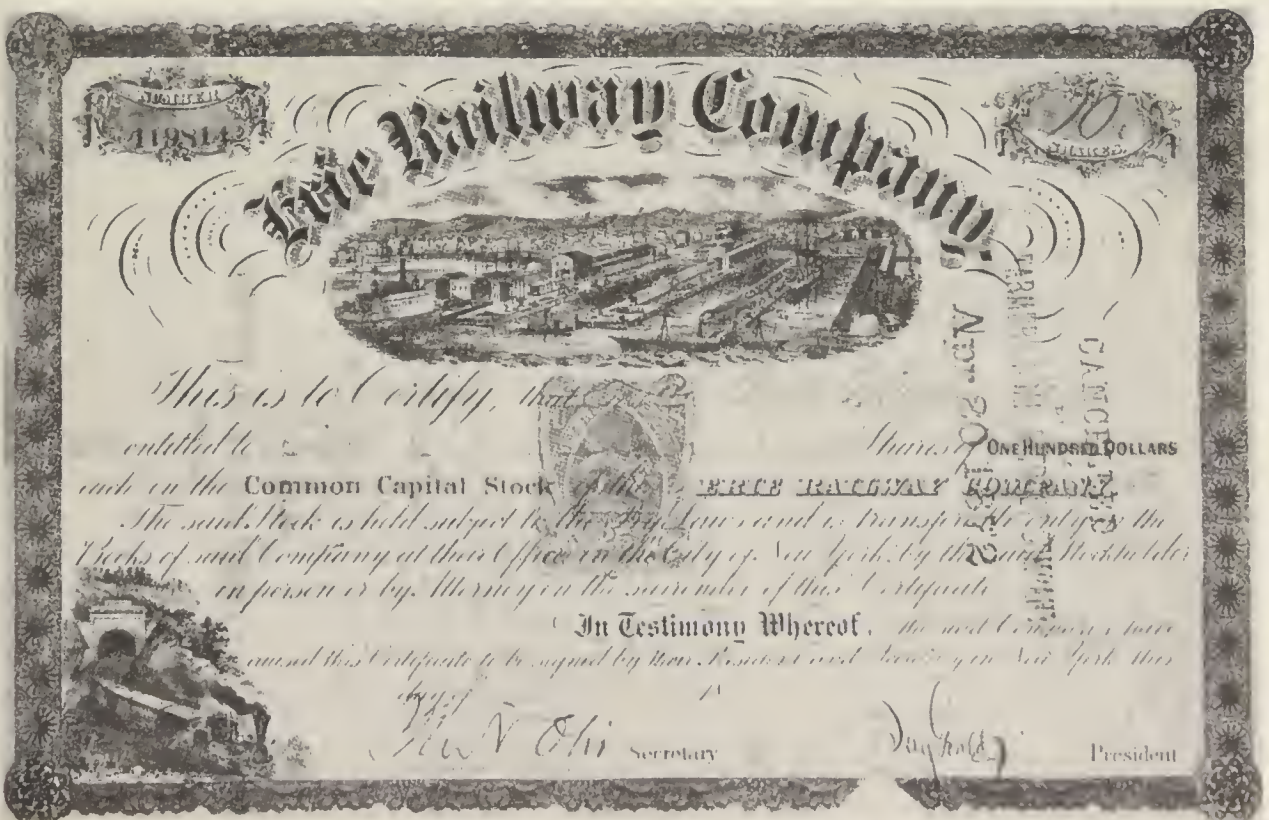 NUMBER
119814
10
SHARES
Erie Railway Company.
This is to Certify, that
entitled to Shares of ONE HUNDRED DOLLARS
each in the Common Capital Stock of the ERIE RAILWAY COMPANY
The said Stock is held subject to the By Laws and is transferable only on the
Books of said Company at their Office in the City of New York, by the said Stockholder
in person or by Attorney on the surrender of this Certificate
In Testimony Whereof, the said Company have
caused this Certificate to be signed by their President and Secretary in New York this
day of 18
Secretary
Jay Gould President
CANCELLED